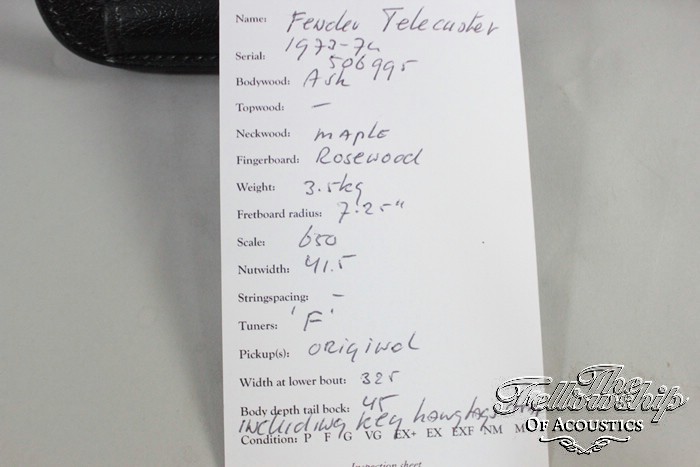 Name: Fender Telecaster
1973-74
Serial: 506995
Bodywood: Ash
Topwood: -
Neckwood: maple
Fingerboard: Rosewood
Weight: 3.5kg
Fretboard radius: 7.25"
Scale: 650
Nutwidth: 41.5
Stringspacing: -
Tuners: 'F'
Pickup(s): original
Width at lower bout: 325
Body depth tail bock: 45
including key hangtags
Condition: P F G VG EX+ EX EXF NM M
Inspection sheet
The
Fellowship
Of Acoustics